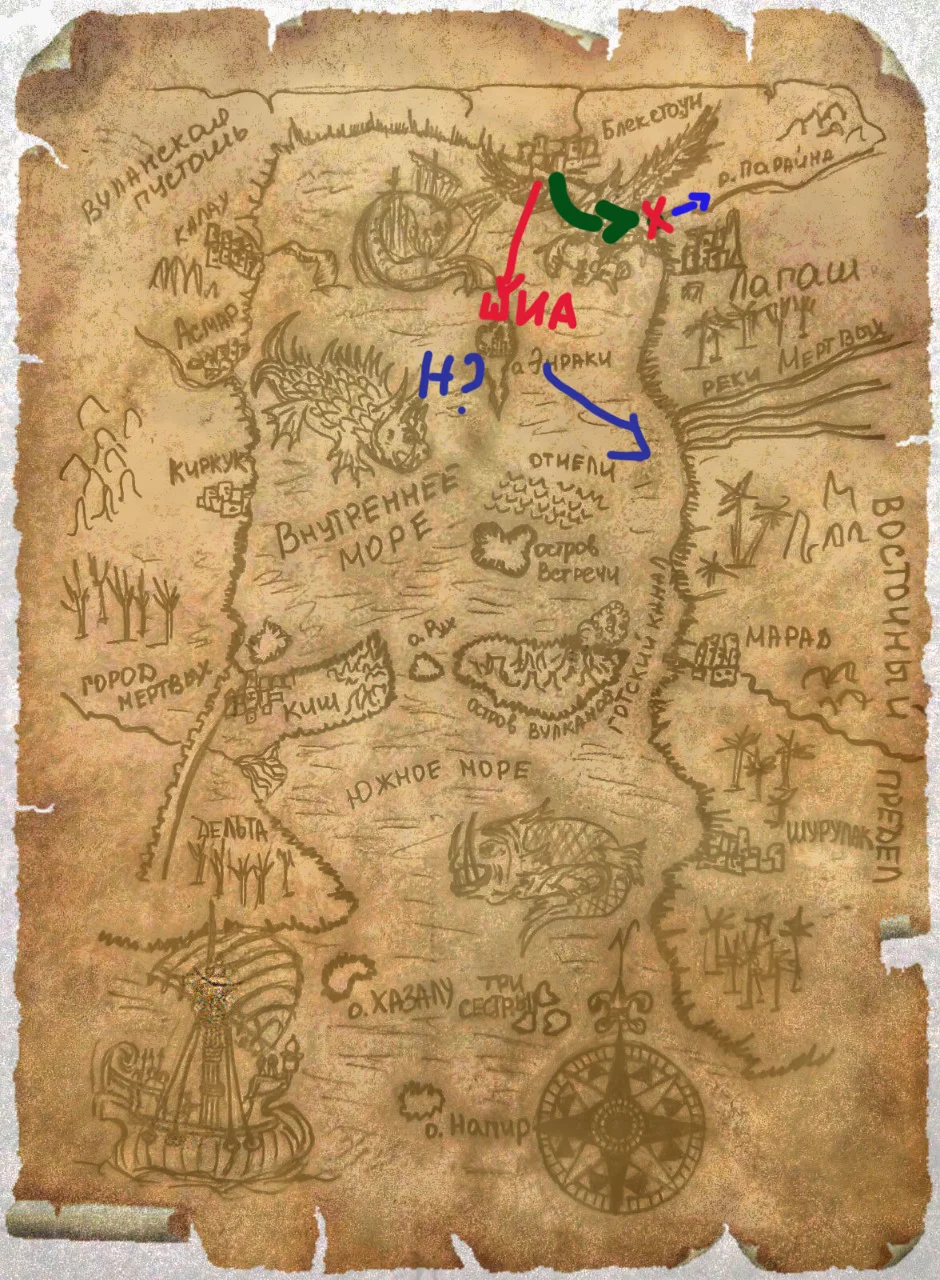 Блекстоун
ВУЛАНСКАЯ
ПУСТОШЬ
р. ПАРАЙНА
КАЛАУ
X
Лагаш
ШИА
АСМАР
Н?
о. ЭНРАКИ
РЕКИ МЕРТВЫХ
КИРКУК
ОТМЕЛИ
ВНУТРЕННЕЕ
МОРЕ
ОСТРОВ
ВСТРЕЧИ
ВОСТОЧНЫЙ ПРЕДЕЛ
о. РУХ
МАРАД
ГОРОД
МЕРТВЫХ
КИШ
ОСТРОВ ВУЛКАНОВ
ГОТСКИЙ КАНАЛ
ЮЖНОЕ МОРЕ
ДЕЛЬТА
ШУРУПАК
N
о. ХАЗАЛУ
ТРИ
СЕСТРЫ
о. НАПИР